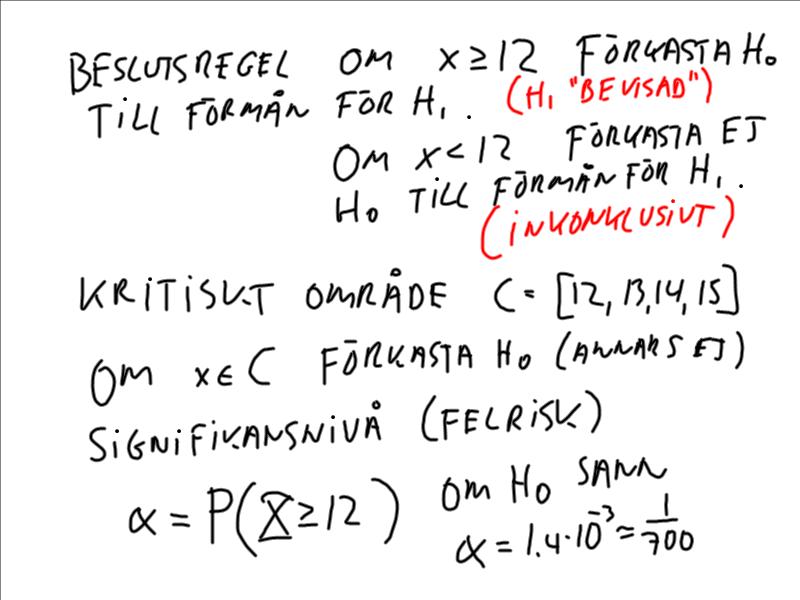 BESLUTSREGEL OM X ≥ 12 FÖRKASTA H₀
TILL FÖRMÅN FÖR H₁. (H₁ "BEVISAD")
OM X < 12 FÖRKASTA EJ
H₀ TILL FÖRMÅN FÖR H₁.
(INKONKLUSIVT)
KRITISKT OMRÅDE C = [12, 13, 14, 15]
OM X ∈ C FÖRKASTA H₀ (ANNARS EJ)
SIGNIFIKANSNIVÅ (FELRISK)
α = P(X ≥ 12) OM H₀ SANN
α = 1.4·10⁻³ ≈ 1/700